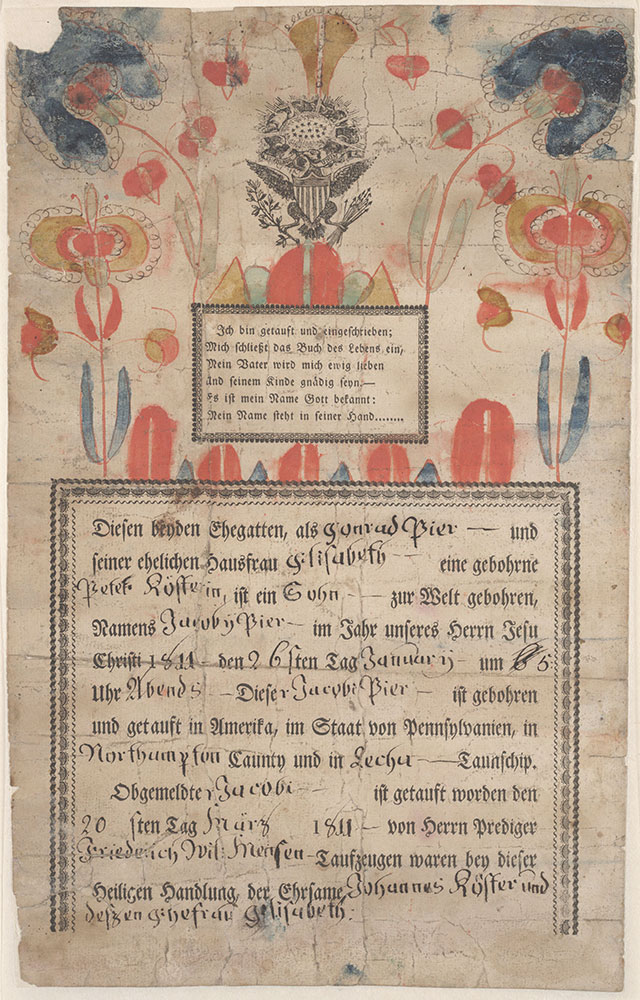 Ich bin getauft und eingeschrieben;
Mich schließt das Buch des Lebens ein,
Mein Vater wird mich ewig lieben
And seinem Kinde gnädig seyn.—
Es ist mein Name Gott bekannt:
Mein Name steht in seiner Hand........
Diesen beyden Ehegatten, als Conrad Pier — und
seiner ehelichen Hausfrau Elisabeth — eine gebohrne
Peter Köster in, ist ein Sohn — zur Welt gebohren,
Namens Jacob Pier — im Jahr unseres Herrn Jesu
Christi 1811 — den 26 sten Tag January — um 5
Uhr Abends — Dieser Jacob Pier — ist gebohren
und getauft in Amerika, im Staat von Pennsylvanien, in
Northampton Caunty und in Lecha — Taunschip.
Obgemeldter Jacob — ist getauft worden den
20 sten Tag März 1811 — von Herrn Prediger
Friederich Wil: Meusen — Taufzeugen waren bey dieser
Heiligen Handlung, der Ehrsame Johannes Köster und
deszen Ehefrau Elisabeth: